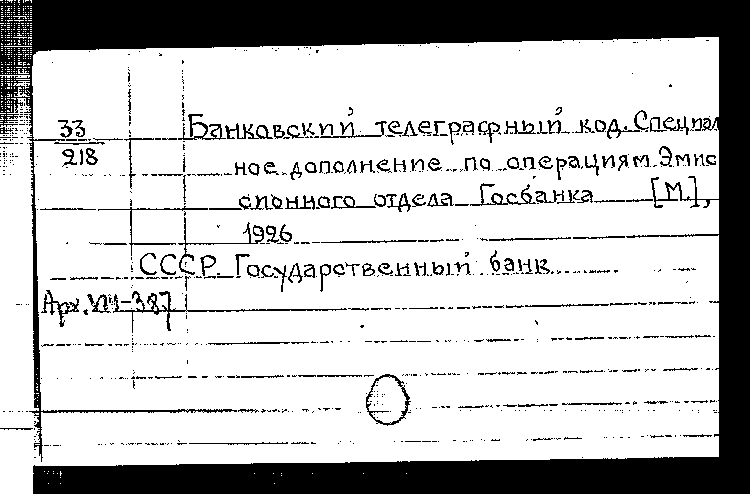 33
218
Банковский телеграфный код. Специал
ное дополнение по операциям Эмис
сионного отдела Госбанка [М.],
1926
СССР. Государственный банк
Арх.